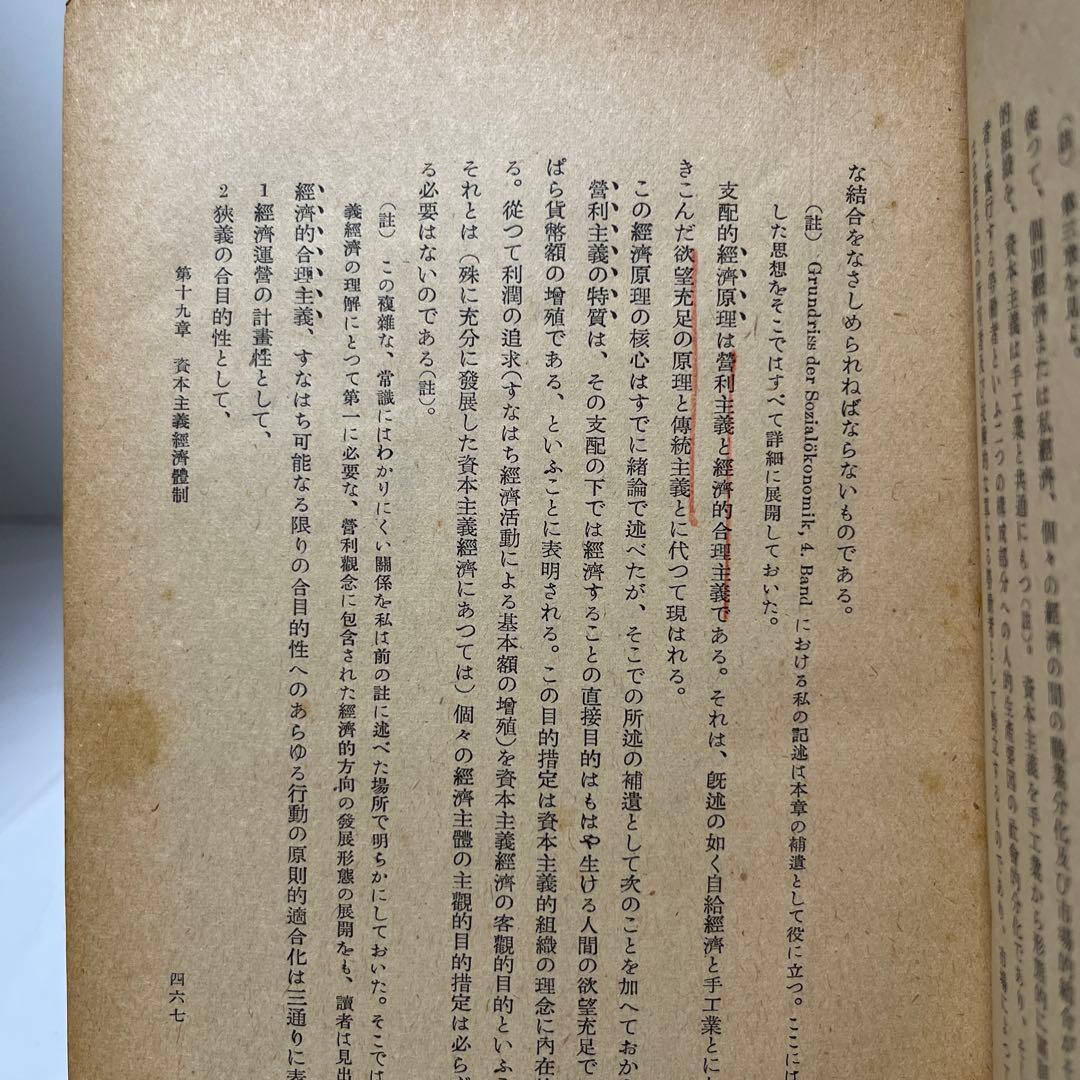 な結合をなさしめられねばならないものである。
（註） Grundriss der Sozialökonomik, 4. Band における私の記述は本章の補遺として役に立つ。ここには
した思想をそこではすべて詳細に展開しておいた。
支配的經濟原理は營利主義と經濟的合理主義である。それは、既述の如く自給經濟と手工業とに
きこんだ欲望充足の原理と傳統主義とに代つて現はれる。
この經濟原理の核心はすでに緒論で述べたが、そこでの所述の補遺として次のことを加へておか
營利主義の特質は、その支配の下では經濟することの直接目的はもはや生ける人間の欲望充足で
ぱら貨幣額の增殖である、といふことに表明される。この目的措定は資本主義的組織の理念に內在
る。從つて利潤の追求（すなはち經濟活動による基本額の增殖）を資本主義經濟の客觀的目的といふ
それとは（殊に充分に發展した資本主義經濟にあつては）個々の經濟主體の主觀的目的措定は必らず
る必要はないのである（註）。
（註） この複雜な、常識にはわかりにくい關係を私は前の註に述べた場所で明らかにしておいた。そこでは
義經濟の理解にとつて第一に必要な、營利觀念に包含された經濟的方向の發展形態の展開をも、讀者は見出
經濟的合理主義、すなはち可能なる限りの合目的性へのあらゆる行動の原則的適合化は三通りに表
1 經濟運營の計畫性として、
2 狹義の合目的性として、
第十九章 資本主義經濟體制
四六七